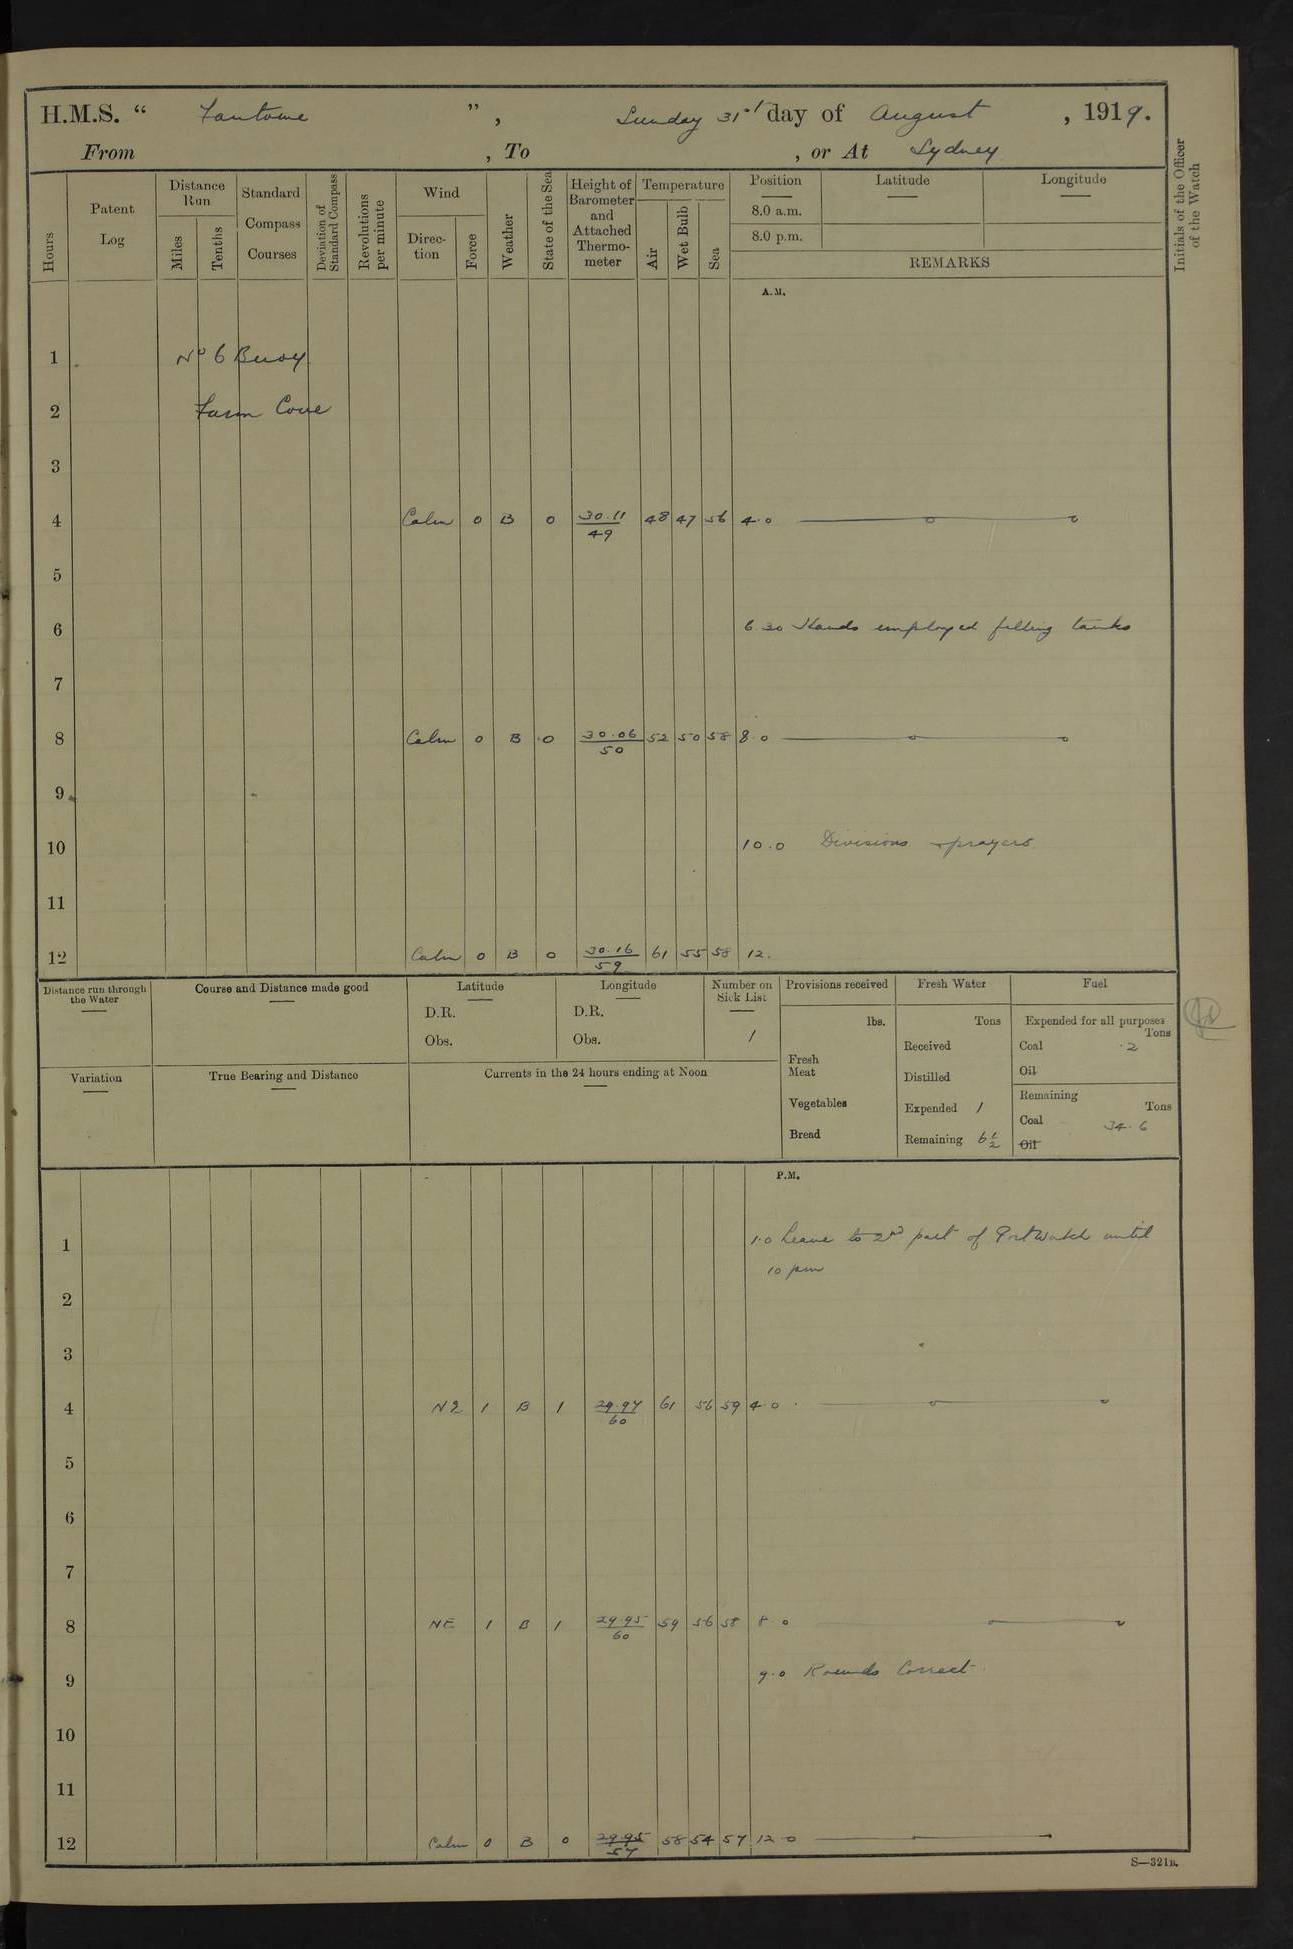 H.M.S. " Fantome ", Sunday 31st day of August, 1919.
From , To , or At Sydney
Hours
Patent Log
Distance Run
Miles
Tenths
Standard Compass Courses
Deviation of Standard Compass
Revolutions per minute
Wind
Direction
Force
Weather
State of the Sea
Height of Barometer and Attached Thermometer
Temperature
Air
Wet Bulb
Sea
Position
8.0 a.m.
8.0 p.m.
Latitude
Longitude
REMARKS
Initials of the Officer of the Watch
A.M.
1 No 6 Buoy
2 Farm Cove
3
4 Calm 0 B 0 30.11/49 48 47 56 4.0
5
6 6.30 Hands employed filling tanks
7
8 Calm 0 B 0 30.06/50 52 50 58 8.0
9
10 10.0 Divisions + prayers
11
12 Calm 0 B 0 30.16/59 61 55 58 12.
Distance run through the Water
Course and Distance made good
Latitude
D.R.
Obs.
Longitude
D.R.
Obs.
Number on Sick List
1
Provisions received
lbs.
Fresh Meat
Vegetables
Bread
Fresh Water
Tons
Received
Distilled
Expended 1
Remaining 6½
Fuel
Expended for all purposes
Tons
Coal .2
Oil
Remaining
Tons
Coal 34.6
Oil
Variation
True Bearing and Distance
Currents in the 24 hours ending at Noon
P.M.
1 1.0 Leave to 2nd part of Port Watch until
10 pm
2
3
4 NE 1 B 1 29.97/60 61 56 59 4.0
5
6
7
8 NE 1 B 1 29.95/60 59 56 58 8.0
9 9.0 Rounds Correct.
10
11
12 Calm 0 B 0 29.95/57 58 54 57 12.0
S—321B.